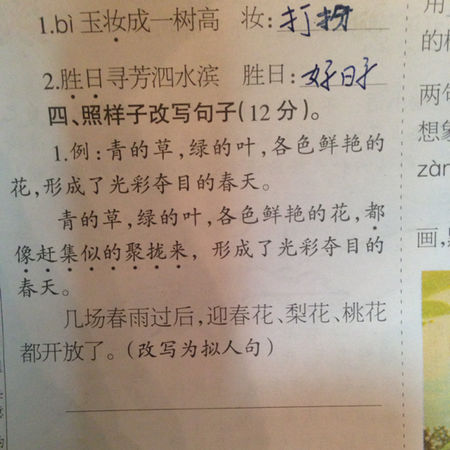 1.bì 玉妆成一树高 妆:打扮
2.胜日寻芳泗水滨 胜日:好日子
四、照样子改写句子(12分)。
1.例:青的草,绿的叶,各色鲜艳的
花,形成了光彩夺目的春天。
青的草,绿的叶,各色鲜艳的花,都
像赶集似的聚拢来,形成了光彩夺目的
春天。
几场春雨过后,迎春花、梨花、桃花
都开放了。(改写为拟人句)
用
的
两句
想象
zàn
画,